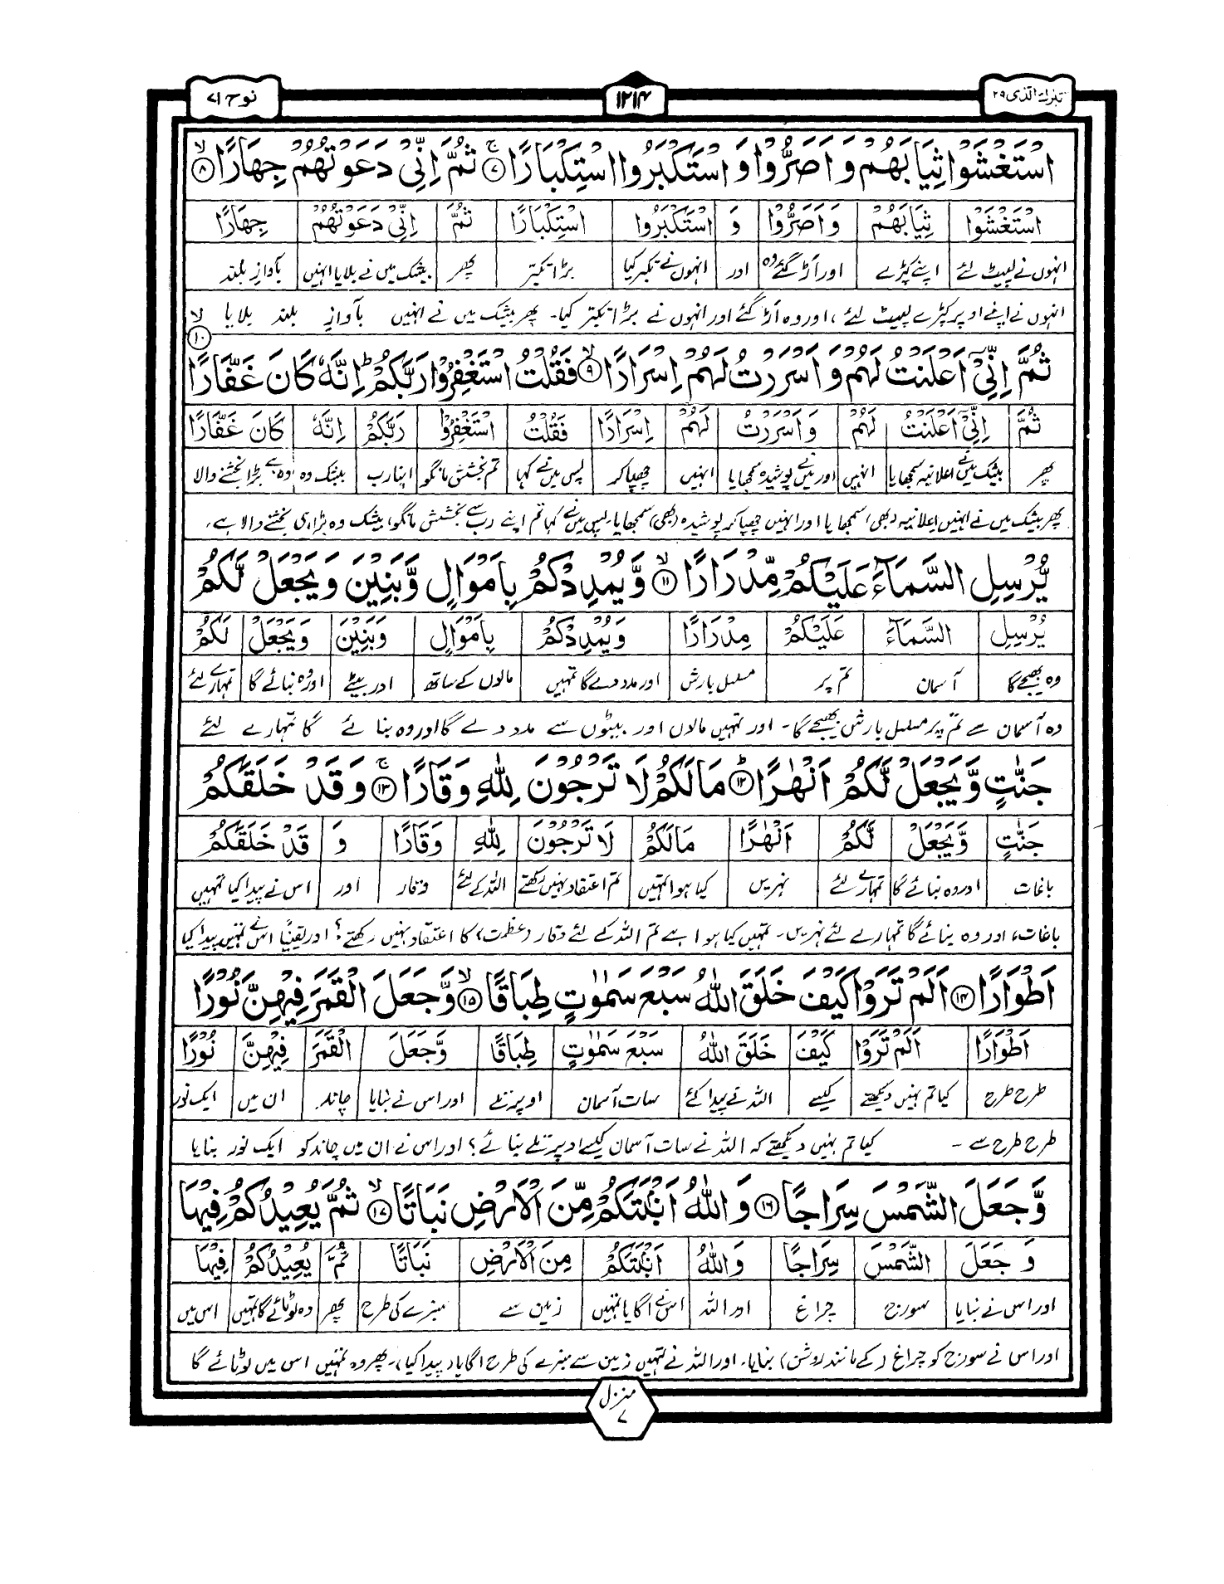 تبٰرك الذی ۲۹
۱۲۱۴
نوح ۷۱
اسْتَغْشَوْا ثِيَابَهُمْ وَاَصَرُّوْا وَاسْتَكْبَرُوا اسْتِكْبَارًا ۷ ثُمَّ اِنِّيْ دَعَوْتُهُمْ جِهَارًا ۸
اسْتَغْشَوْا ثِيَابَهُمْ وَاَصَرُّوْا وَ اسْتَكْبَرُوا اسْتِكْبَارًا ثُمَّ اِنِّيْ دَعَوْتُهُمْ جِهَارًا
انہوں نے لپیٹ لئے اپنے کپڑے اور اڑ گئے وہ اور انہوں نے تکبر کیا بڑا تکبر پھر بیشک میں نے بلایا انہیں بآوازِ بلند
انہوں نے اپنے اوپر کپڑے لپیٹ لئے، اور وہ اڑ گئے اور انہوں نے بڑا تکبر کیا۔ پھر بیشک میں نے انہیں بآوازِ بلند بلایا
ثُمَّ اِنِّيْٓ اَعْلَنْتُ لَهُمْ وَاَسْرَرْتُ لَهُمْ اِسْرَارًا ۹ فَقُلْتُ اسْتَغْفِرُوْا رَبَّكُمْ ؕ اِنَّهٗ كَانَ غَفَّارًا ۱۰
ثُمَّ اِنِّيْٓ اَعْلَنْتُ لَهُمْ وَاَسْرَرْتُ لَهُمْ اِسْرَارًا فَقُلْتُ اسْتَغْفِرُوْا رَبَّكُمْ اِنَّهٗ كَانَ غَفَّارًا
پھر بیشک میں نے اعلانیہ سمجھایا انہیں اور میں نے پوشیدہ سمجھایا انہیں چھپا کر پس میں نے کہا تم بخشش مانگو اپنا رب بیشک وہ وہ ہے بڑا بخشنے والا
پھر بیشک میں نے انہیں اعلانیہ (بھی) سمجھایا اور انہیں چھپا کر پوشیدہ (بھی) سمجھایا، پس میں نے کہا تم اپنے رب سے بخشش مانگو، بیشک وہ بڑا ہی بخشنے والا ہے،
يُّرْسِلِ السَّمَآءَ عَلَيْكُمْ مِّدْرَارًا ۱۱ وَّيُمْدِدْكُمْ بِاَمْوَالٍ وَّبَنِيْنَ وَيَجْعَلْ لَّكُمْ
يُرْسِلِ السَّمَآءَ عَلَيْكُمْ مِدْرَارًا وَيُمْدِدْكُمْ بِاَمْوَالٍ وَبَنِيْنَ وَيَجْعَلْ لَكُمْ
وہ بھیجے گا آسمان تم پر مسلسل بارش اور مدد دے گا تمہیں مالوں کے ساتھ اور بیٹے اور وہ بنائے گا تمہارے لئے
وہ آسمان سے تم پر مسلسل بارش بھیجے گا۔ اور تمہیں مالوں اور بیٹوں سے مدد دے گا اور وہ بنائے گا تمہارے لئے
جَنّٰتٍ وَّيَجْعَلْ لَّكُمْ اَنْهٰرًا ۱۲ مَا لَكُمْ لَا تَرْجُوْنَ لِلّٰهِ وَقَارًا ۱۳ وَقَدْ خَلَقَكُمْ
جَنّٰتٍ وَّيَجْعَلْ لَّكُمْ اَنْهٰرًا مَالَكُمْ لَا تَرْجُوْنَ لِلّٰهِ وَقَارًا وَ قَدْ خَلَقَكُمْ
باغات اور وہ بنائے گا تمہارے لئے نہریں کیا ہوا تمہیں تم اعتقاد نہیں رکھتے اللہ کے لئے وقار اور اس نے پیدا کیا تمہیں
باغات، اور وہ بنائے گا تمہارے لئے نہریں۔ تمہیں کیا ہوا ہے تم اللہ کے لئے وقار (عظمت) کا اعتقاد نہیں رکھتے؟ اور یقیناً اس نے تمہیں پیدا کیا
اَطْوَارًا ۱۴ اَلَمْ تَرَوْا كَيْفَ خَلَقَ اللّٰهُ سَبْعَ سَمٰوٰتٍ طِبَاقًا ۱۵ وَّجَعَلَ الْقَمَرَ فِيْهِنَّ نُوْرًا
اَطْوَارًا اَلَمْ تَرَوْا كَيْفَ خَلَقَ اللّٰهُ سَبْعَ سَمٰوٰتٍ طِبَاقًا وَّجَعَلَ الْقَمَرَ فِيْهِنَّ نُوْرًا
طرح طرح کیا تم نہیں دیکھتے کیسے اللہ نے پیدا کئے سات آسمان اوپر تلے اور اس نے بنایا چاند ان میں ایک نور
طرح طرح سے ۔ کیا تم نہیں دیکھتے کہ اللہ نے سات آسمان کیسے اوپر تلے بنائے؟ اور اس نے ان میں چاند کو ایک نور بنایا
وَّجَعَلَ الشَّمْسَ سِرَاجًا ۱۶ وَاللّٰهُ اَنْۢبَتَكُمْ مِّنَ الْاَرْضِ نَبَاتًا ۱۷ ثُمَّ يُعِيْدُكُمْ فِيْهَا
وَ جَعَلَ الشَّمْسَ سِرَاجًا وَاللّٰهُ اَنْۢبَتَكُمْ مِنَ الْاَرْضِ نَبَاتًا ثُمَّ يُعِيْدُكُمْ فِيْهَا
اور اس نے بنایا سورج چراغ اور اللہ اس نے اگایا تمہیں زمین سے سبزے کی طرح پھر وہ لوٹائے گا تمہیں اس میں
اور اس نے سورج کو چراغ (کے مانند روشن) بنایا، اور اللہ نے تمہیں زمین سے سبزے کی طرح اگایا (پیدا کیا)، پھر وہ تمہیں اس میں لوٹائے گا
منزل
۷